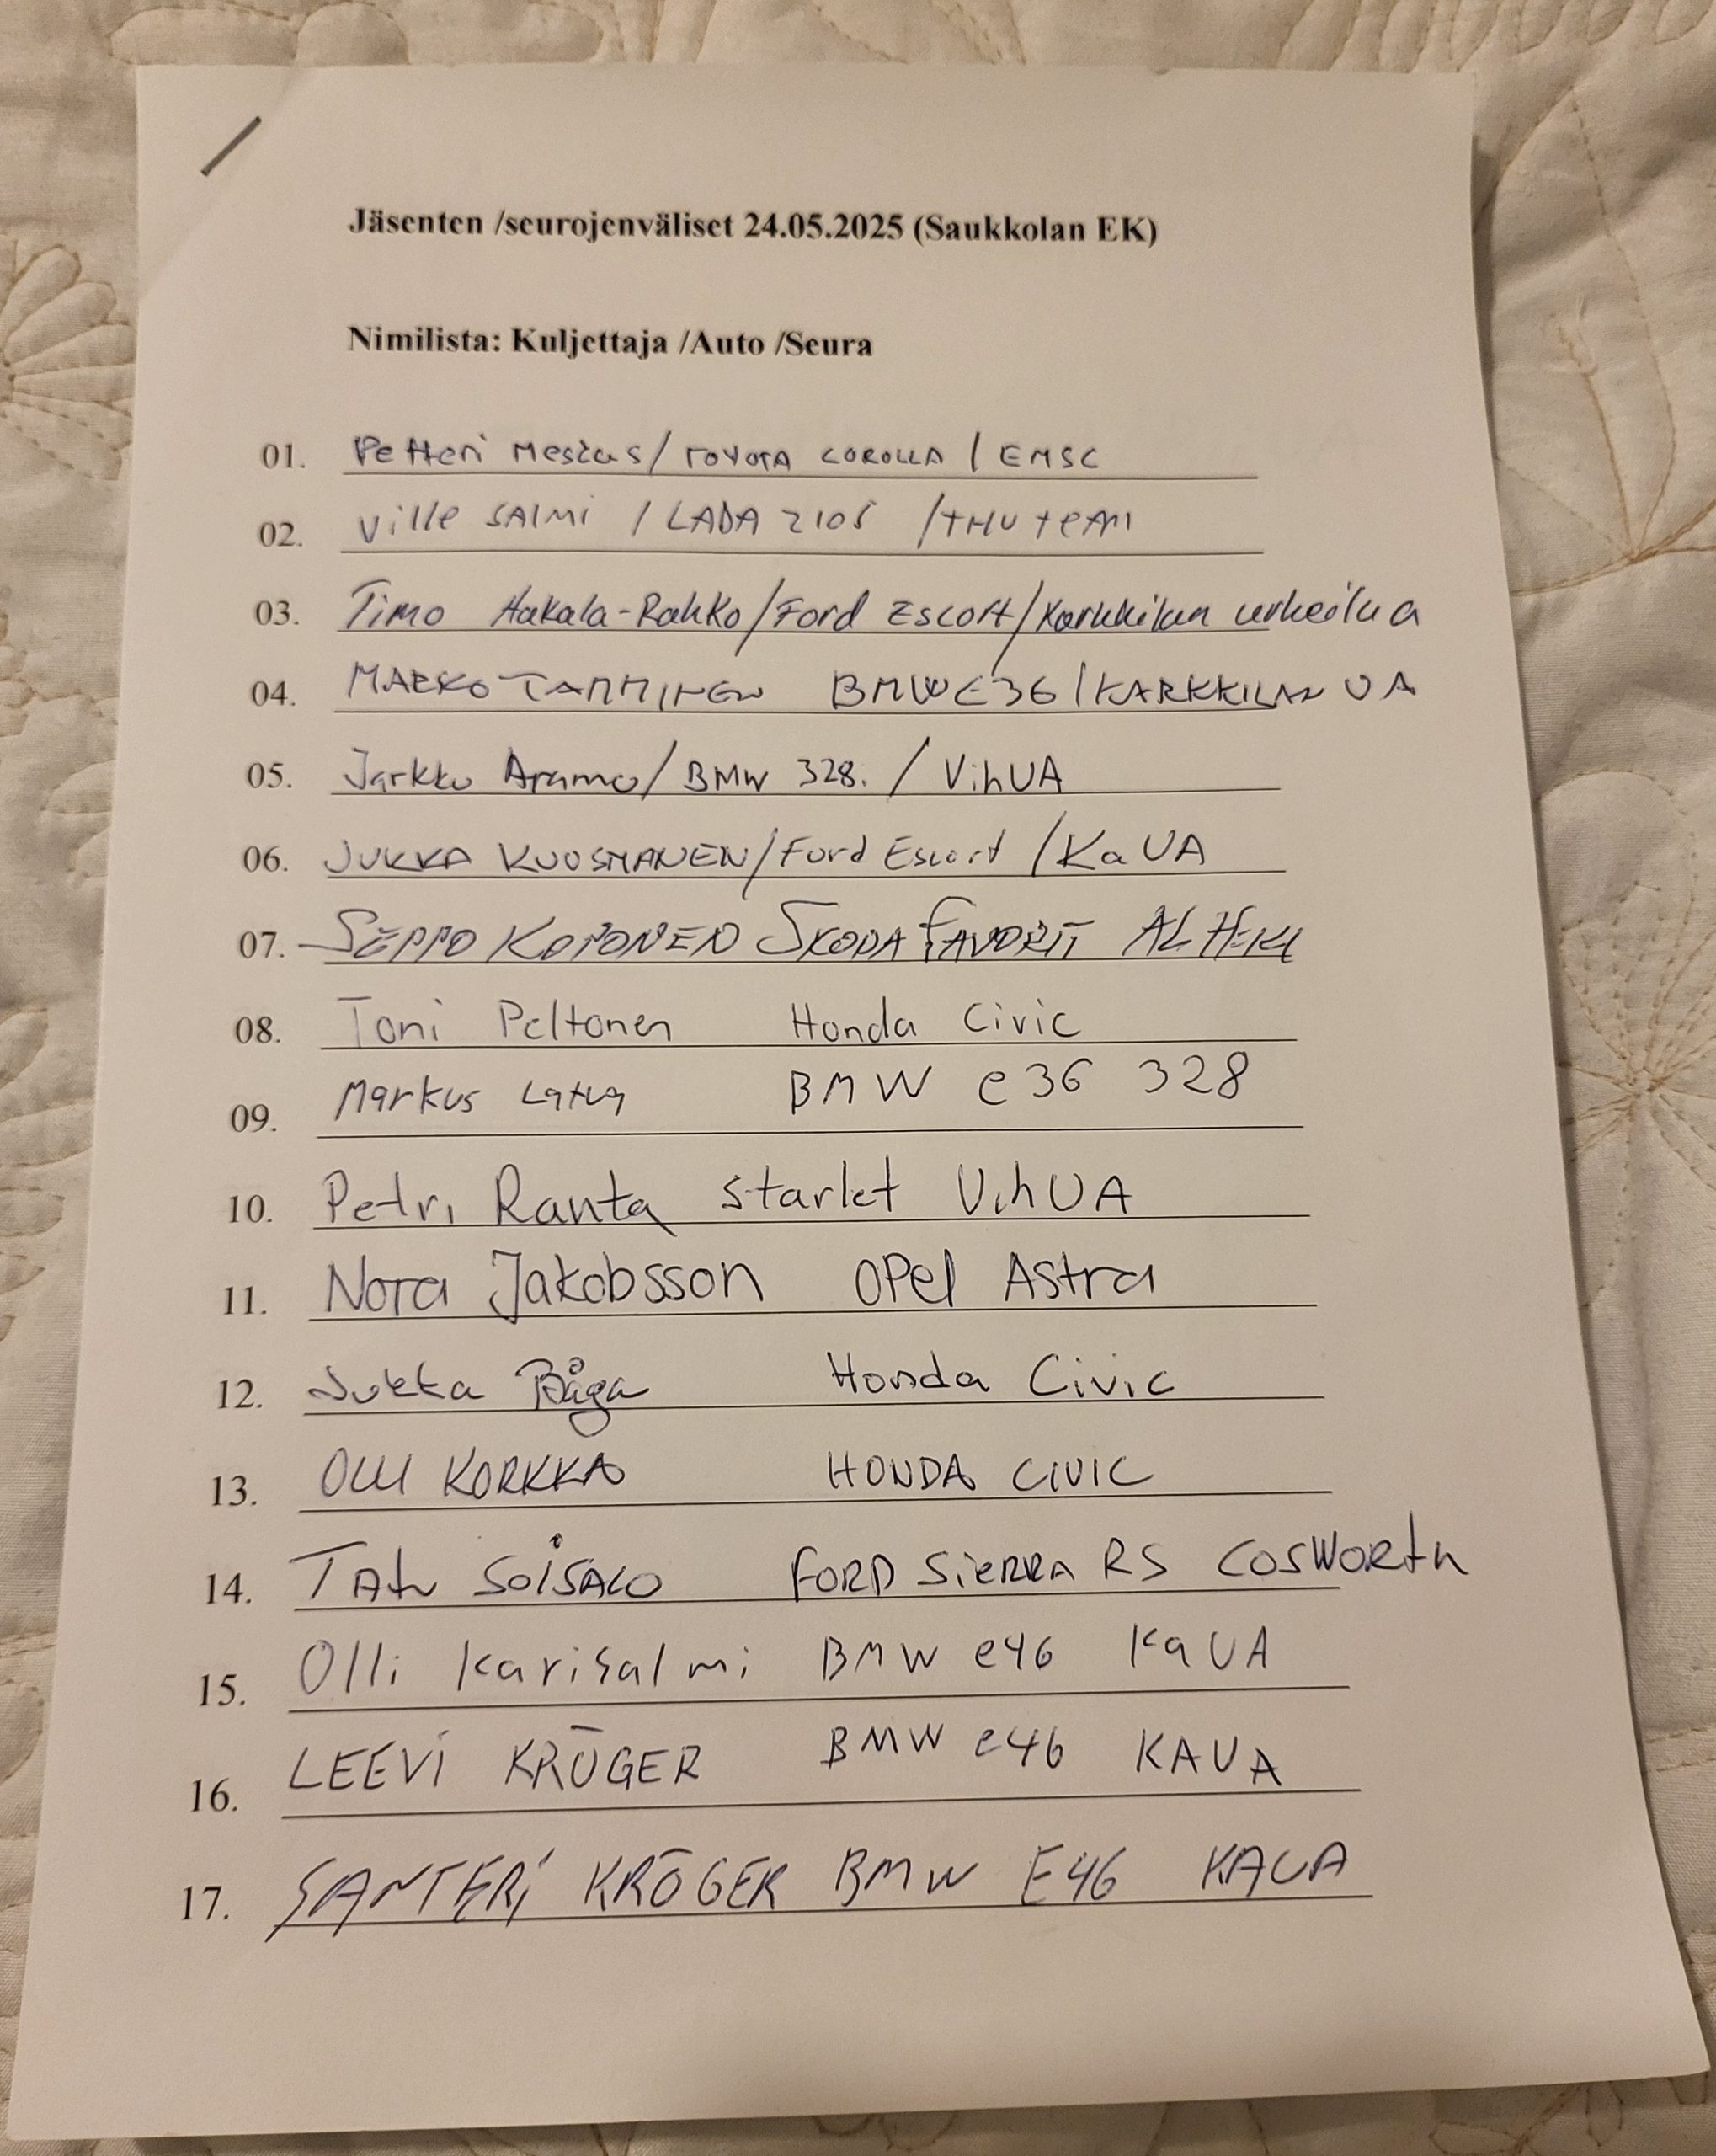 Jäsenten /seurojenväliset 24.05.2025 (Saukkolan EK)
Nimilista: Kuljettaja /Auto /Seura
01. Petteri / TOYOTA COROLLA / EMSC
02. Ville SALMI / LADA 2105 / THU TeAM
03. Timo Hakala-Rahko/Ford Escort/Karkkilan urheilua
04. MARKO TAMMINEN BMW E36 / KARKKILAN UA
05. Jarkko Aramo/BMW 328. / VihUA
06. JUKKA KUOSMANEN/Ford Escort /KaUA
07. SEPPO KOPONEN SKODA FAVORIT
08. Toni Peltonen Honda Civic
09. Markus Latva BMW e36 328
10. Petri Ranta starlet VihUA
11. Nora Jakobsson OPel Astra
12. Jukka Honda Civic
13. OLLI KORKKA HONDA CIVIC
14. TAtu SOiSALO FORD SiERRA RS COSWORth
15. Olli Karisalmi BMW e46 KaUA
16. LEEVi KRÜGER BMW e46 KAUA
17. SANTERi KRÜGER BMW E46 KAUA